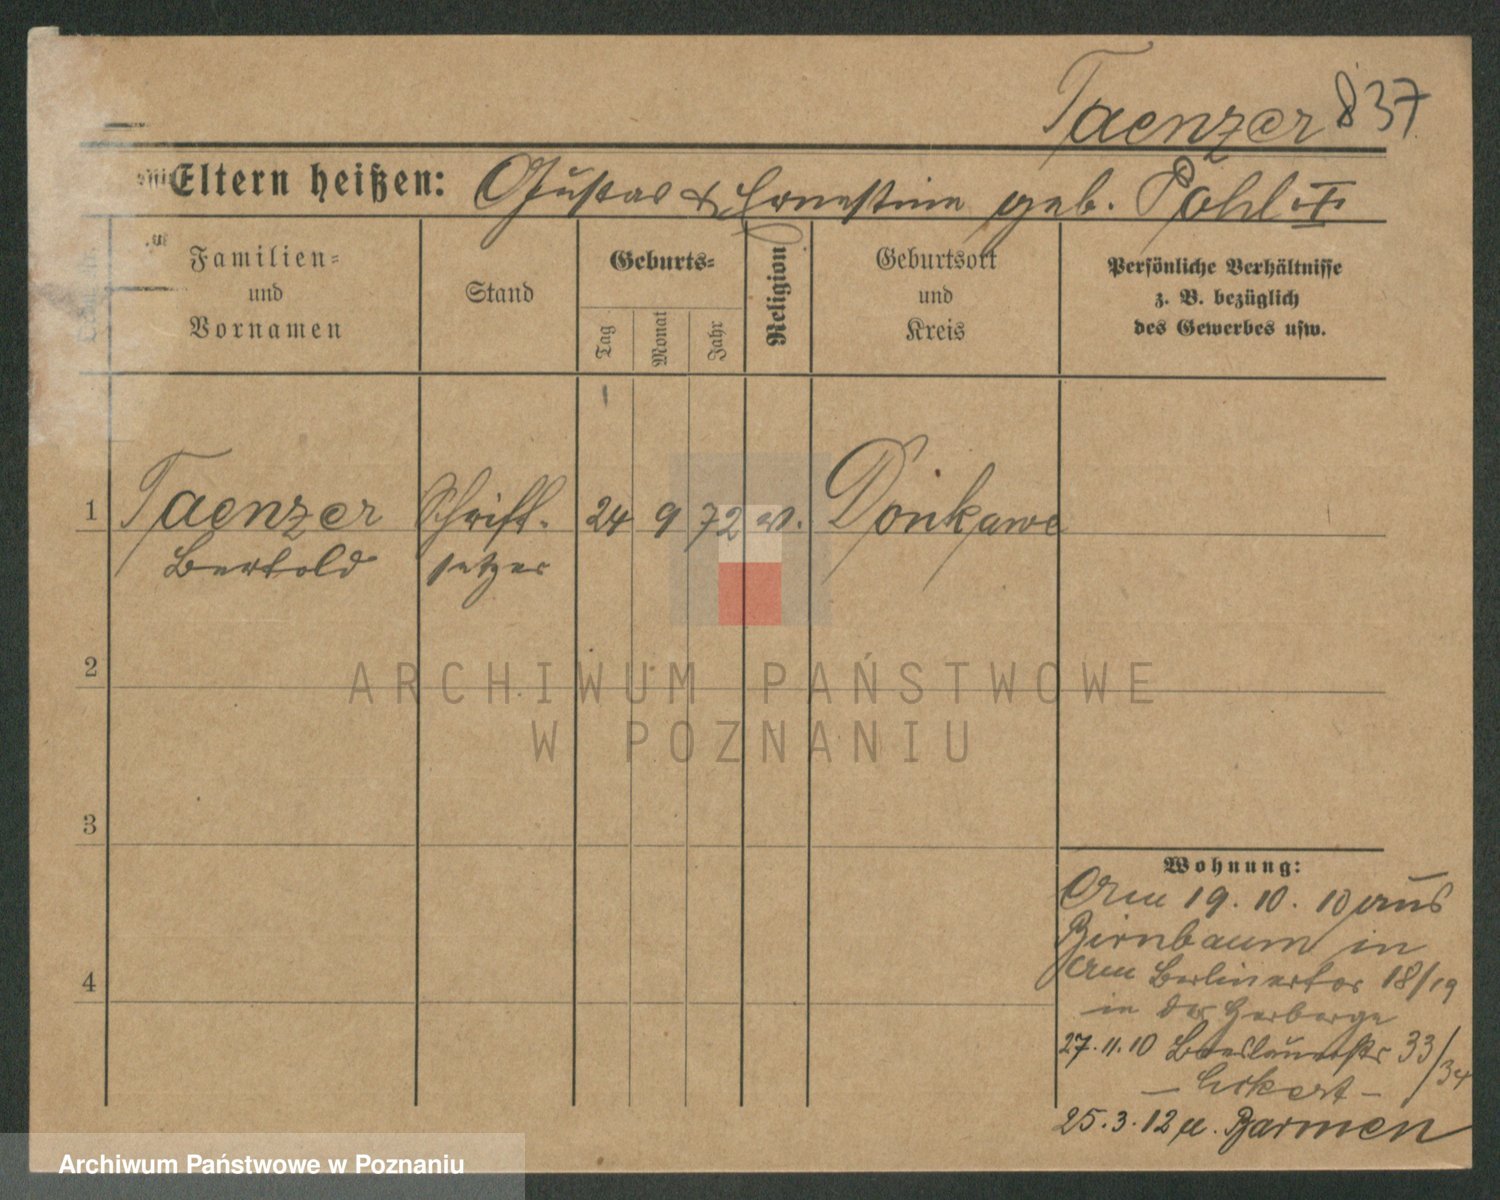 Taenzer 837
Eltern heißen: Gustav & Ernestine geb. Pohl II
Familien=
und
Vornamen
Stand
Geburts=
Tag
Monat
Jahr
Religion
Geburtsort
und
Kreis
Persönliche Verhältnisse
z. B. bezüglich
des Gewerbes usw.
1 Taenzer Schrift- 24 9 72 ev. Donkawe
Bertold setzer
2
3
4
Wohnung:
Am 19. 10. 10 aus
Birnbaum in
Am Berlinertor 18/19
in der Herberge
27. 11. 10 Breslauerstr 33/34
- Eckert -
25. 3. 12 n. Barmen
ARCHIWUM PAŃSTWOWE
W POZNANIU
Archiwum Państwowe w Poznaniu